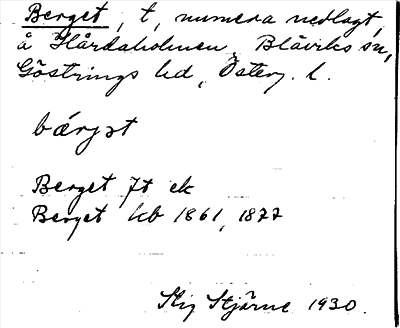 Berget, t, numera nedlagt,
å Hårdaholmen, Blåviks sn,
Göstrings hd, Österg. l.
bærgət
Berget Jt ek
Berget hb 1861, 1877
Stig Stjärne 1930.